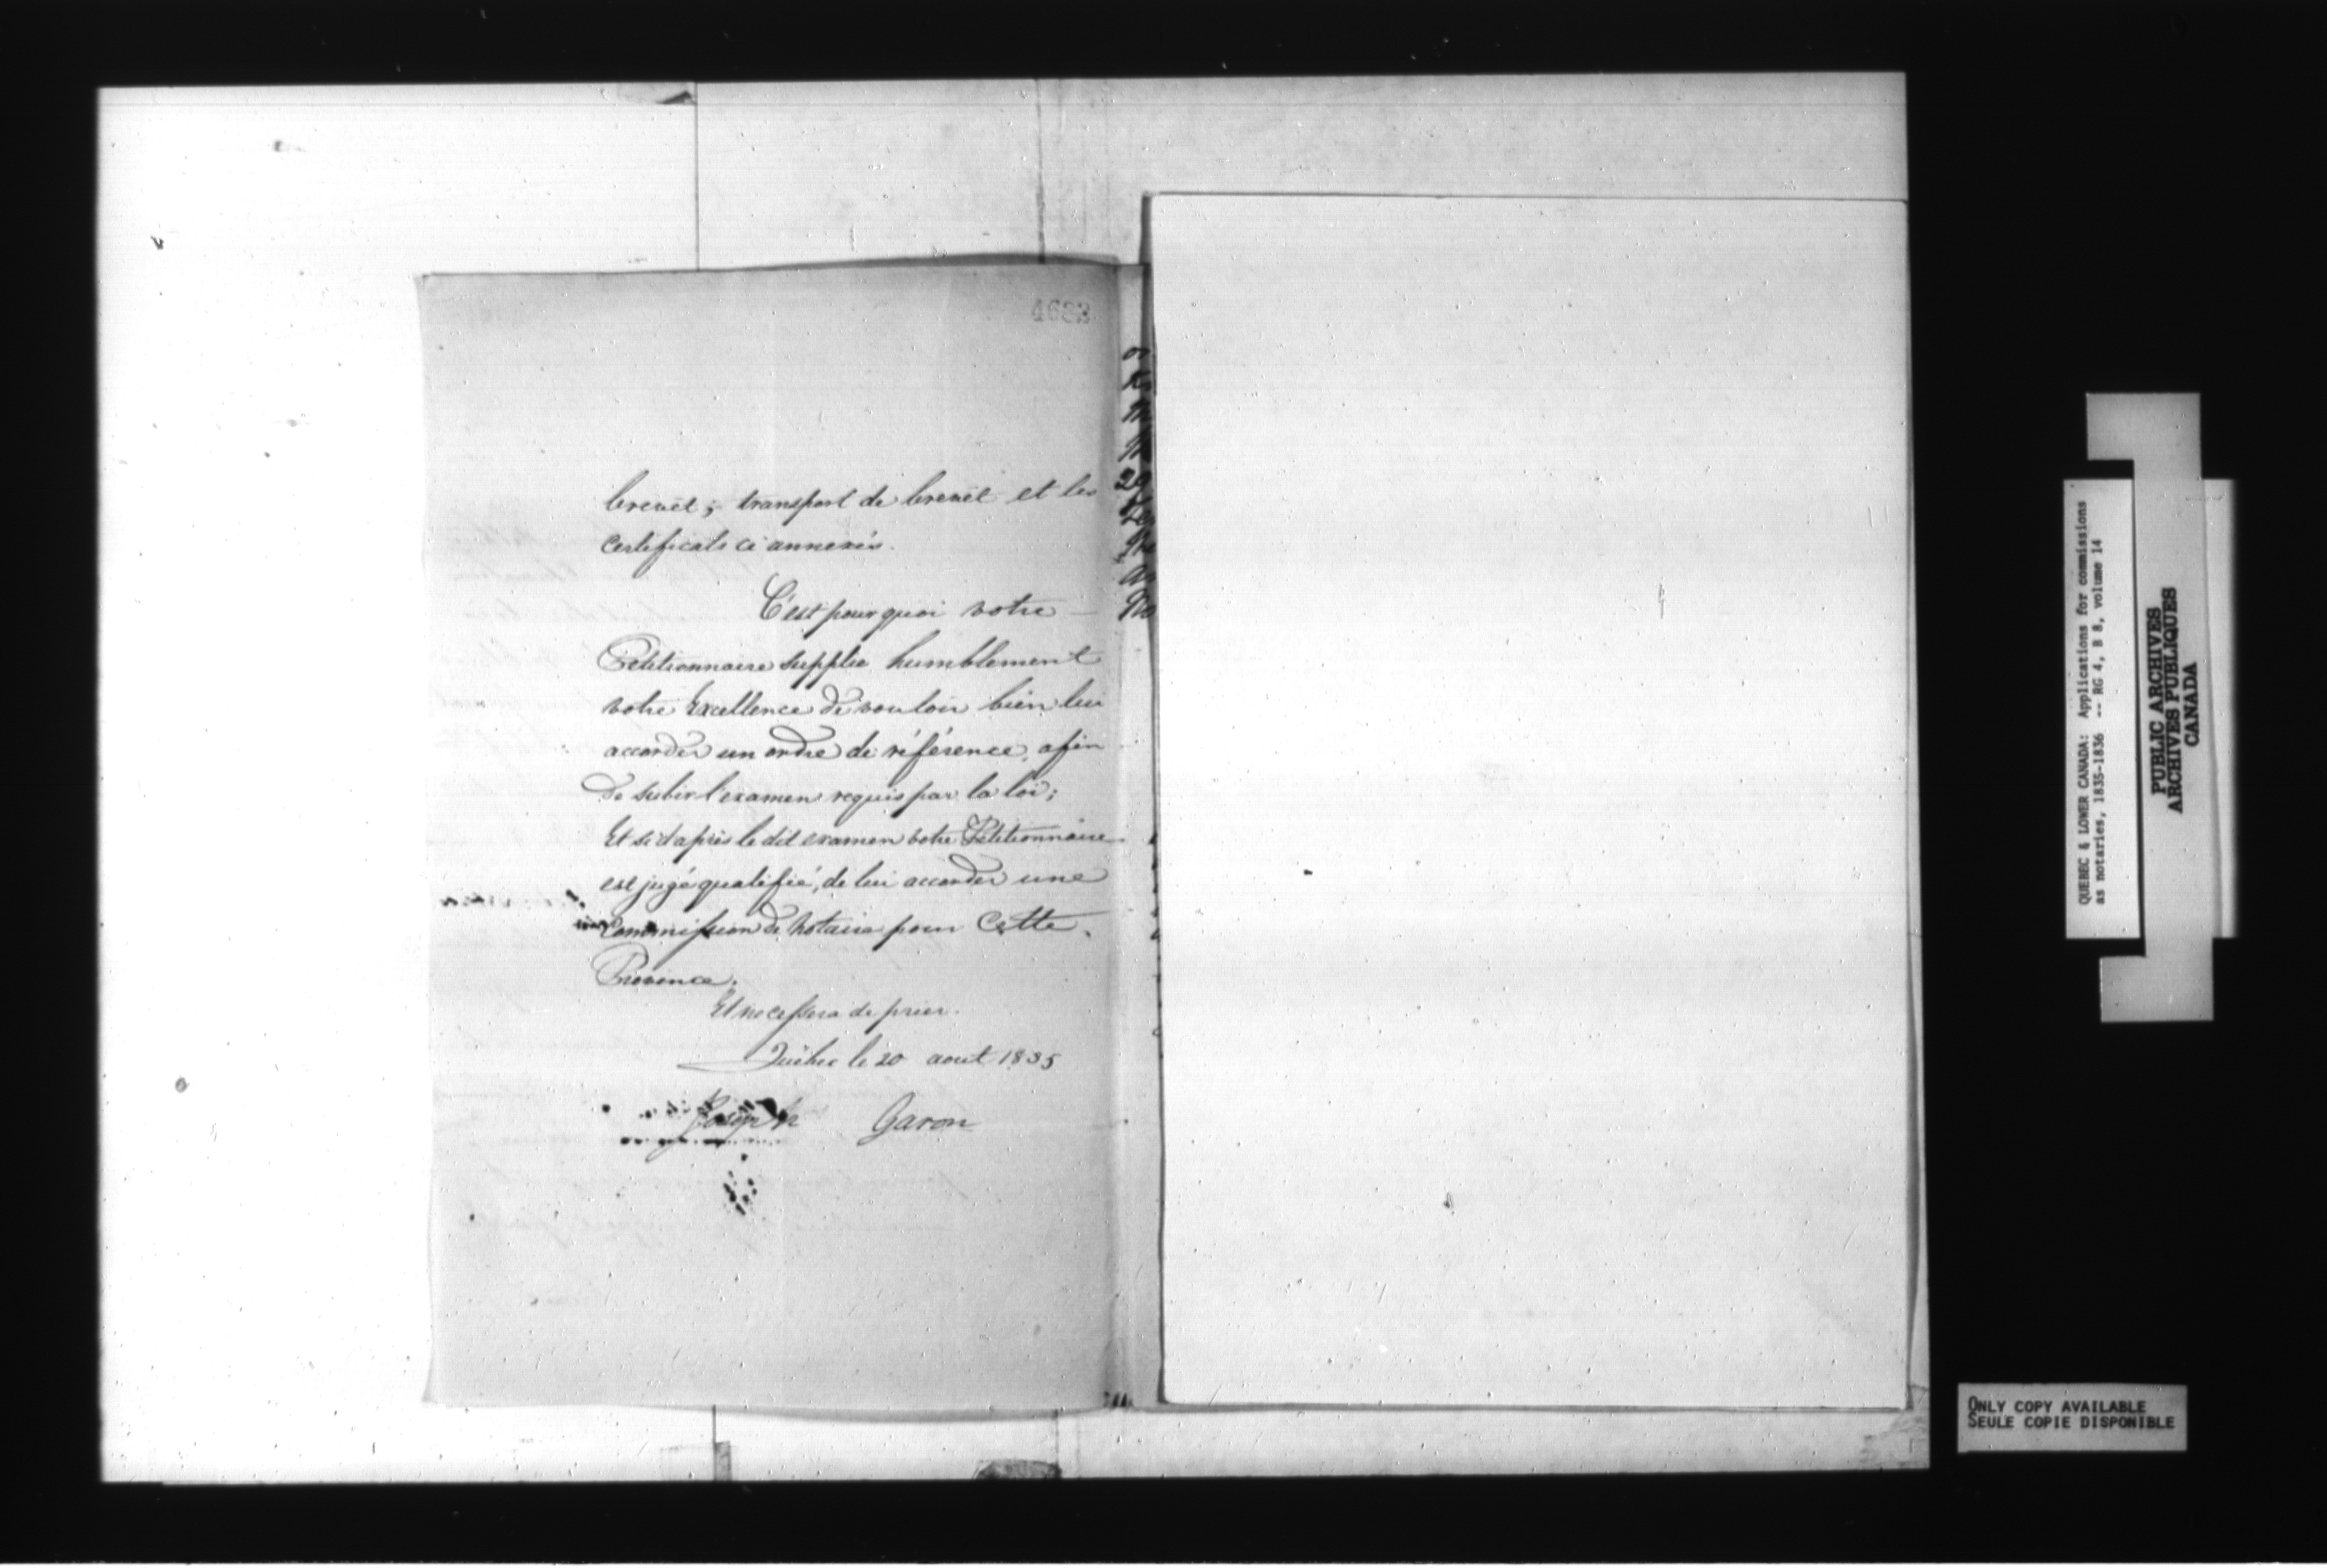 4683
brevet; transport de brevet et les
certificats ci annexés.
C'est pourquoi votre
Petitionnaire supplie humblement
votre Excellence de vouloir bien lui
accorder un ordre de référence, afin
de subir l'examen requis par la loi;
Et si d'après le dit examen votre Petitionnaire
est jugé qualifié, de lui accorder une
Commission de Notaire pour Cette
Province.
Et ne cessera de prier.
Québec le 20 aout 1835
Joseph Garon
QUEBEC & LOWER CANADA: Applications for commissions
as notaries, 1835-1836 -- RG 4, B 8, volume 14
PUBLIC ARCHIVES
ARCHIVES PUBLIQUES
CANADA
ONLY COPY AVAILABLE
SEULE COPIE DISPONIBLE